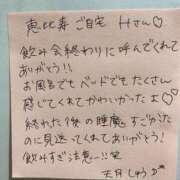 恵比寿 ご自宅 Hさん♡
飲み会終わりに呼んでくれて
ありがとう!!
お風呂でもベッドでもたくさん
感じてくれてかわいかったよ♡
終わった後の睡魔、すごかった
のに見送ってくれてありがとう!
飲みすぎ注意…!!笑
天月しゅう